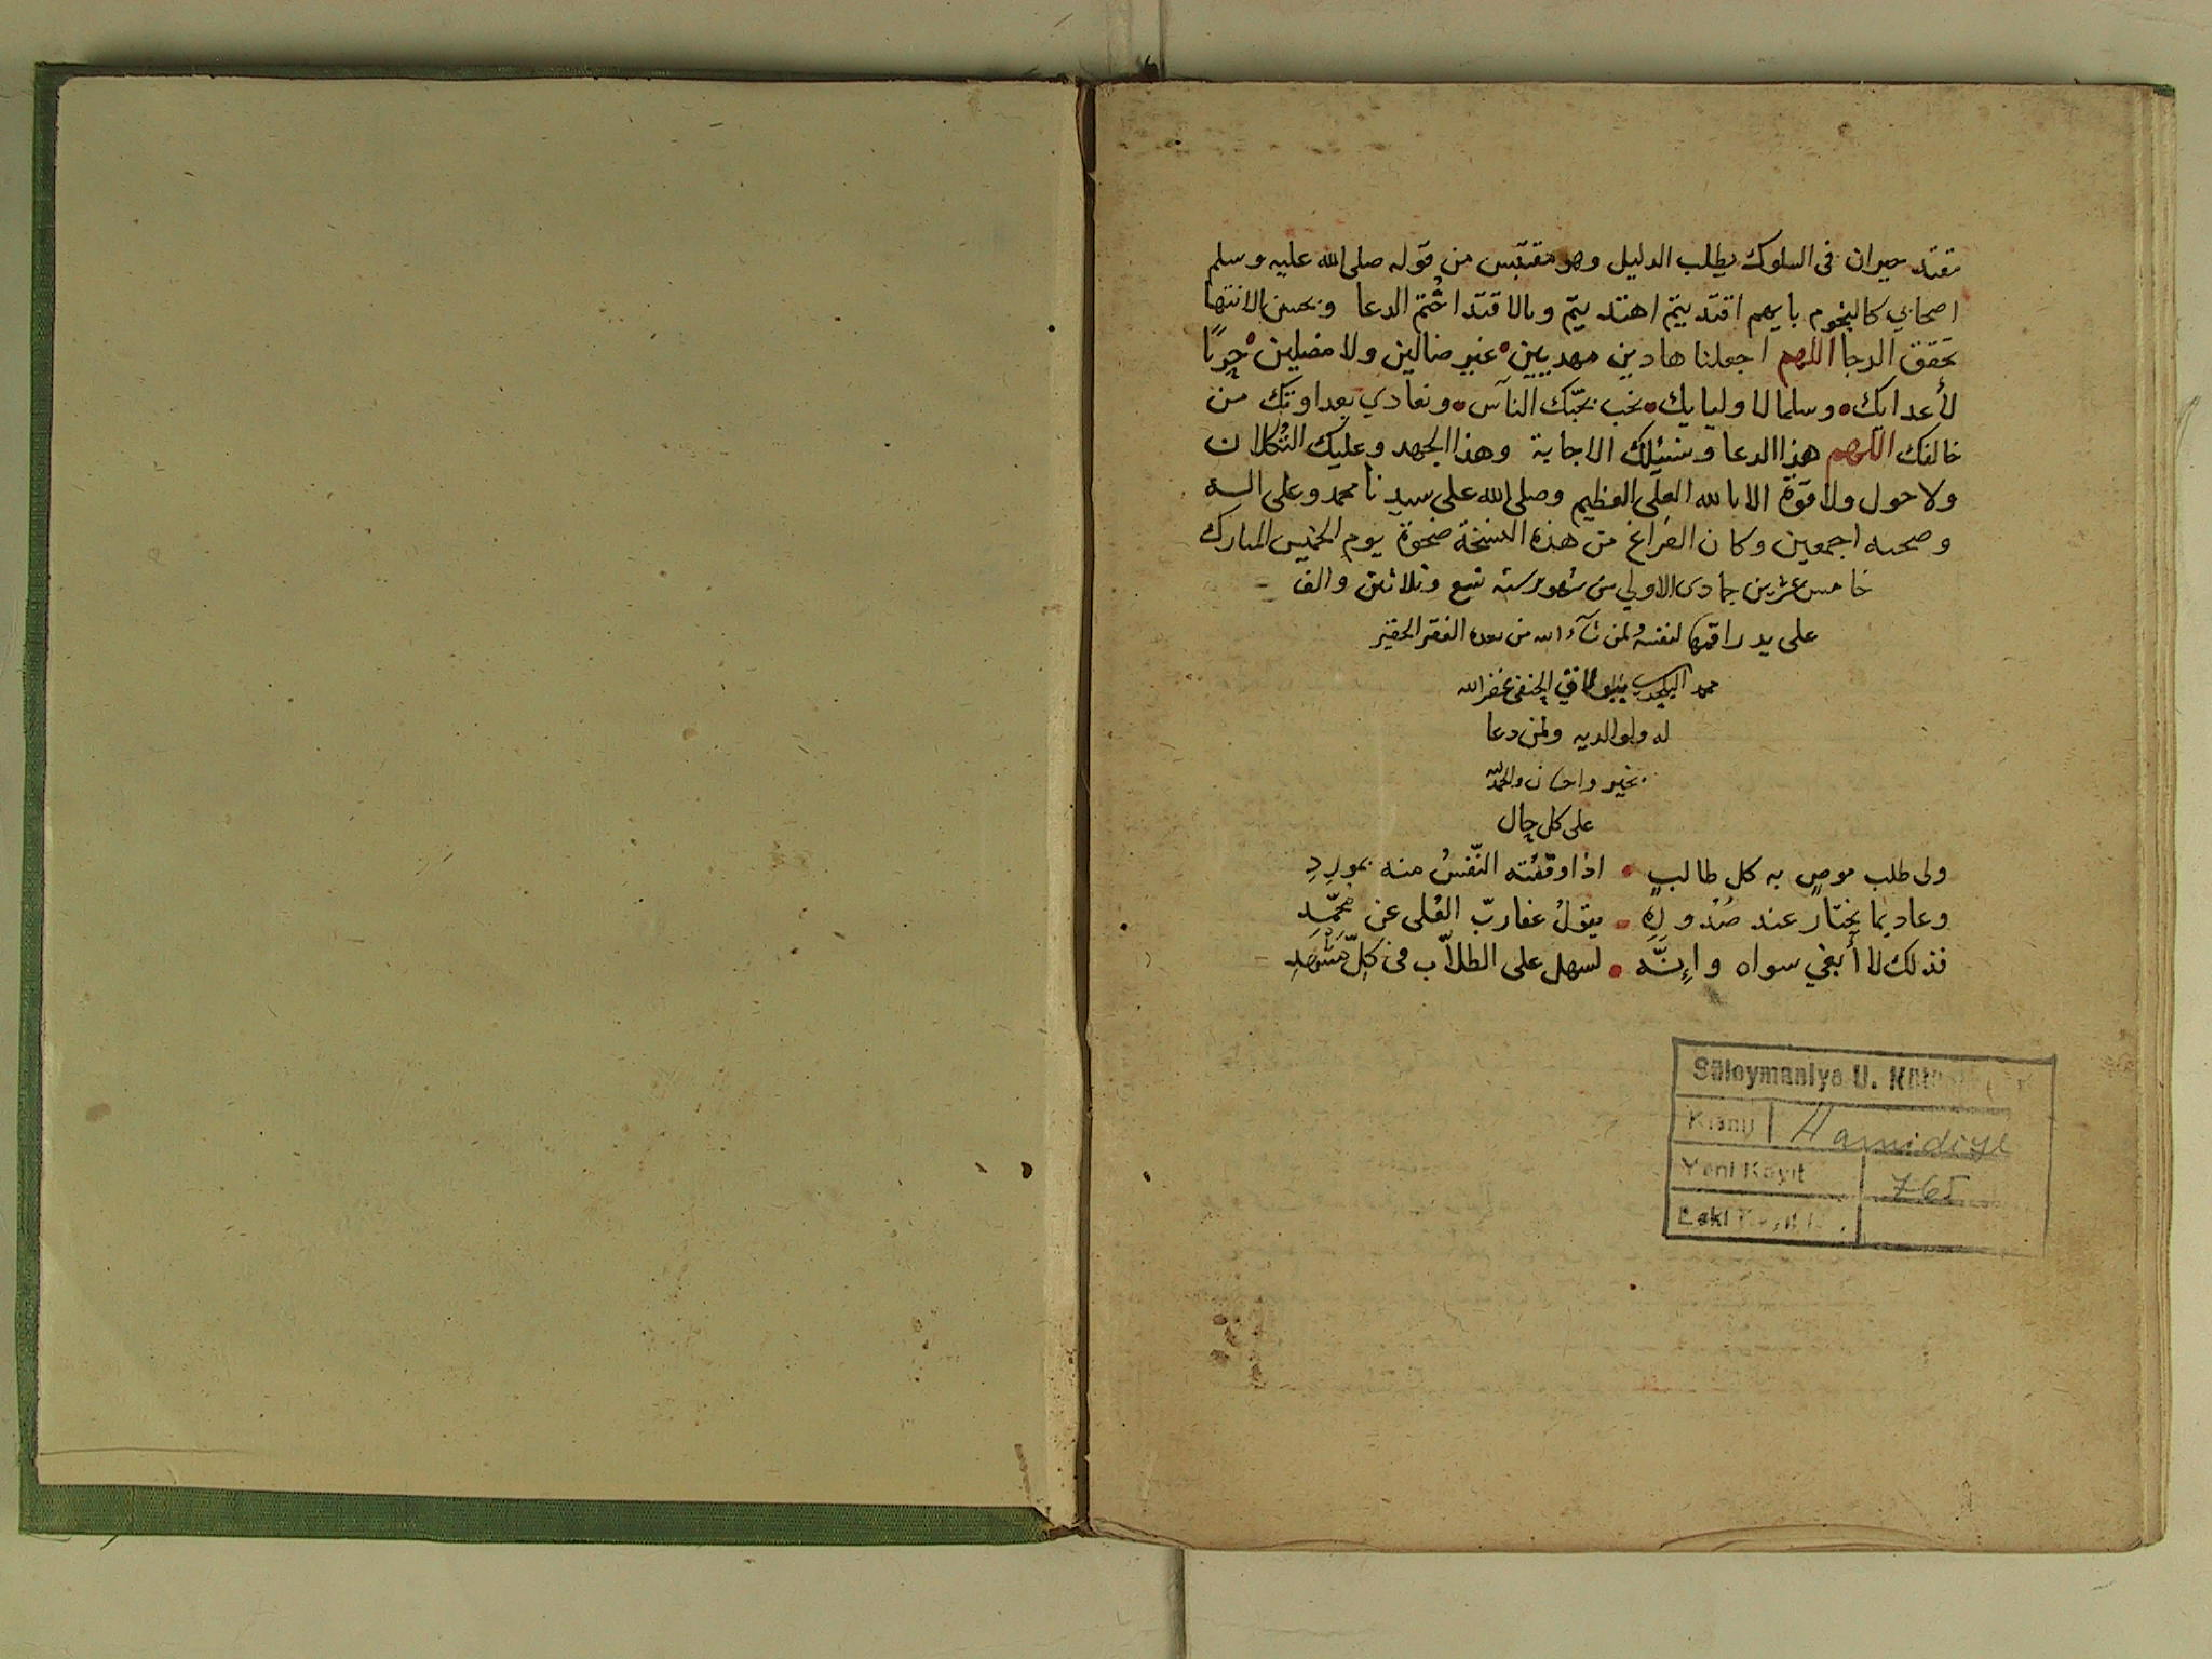 مقتد حيران فى السلوك يطلب الدليل وهو مقتبس من قوله صلى الله عليه وسلم
اصحابي كالنجوم بايهم اقتديتم اهتديتم وبالاقتدا ختم الدعا وبحسن الانتها
تحقق الرجا اللهم اجعلنا هادين مهديين غير ضالين ولا مضلين حربًا
لأعدايك وسلما لاوليايك نحب بحبّك الناس ونعادي بعداوتك من
خالفك اللهم هذا الدعا ومنك الاجابة وهذا الجهد وعليك التكلان
ولا حول ولا قوة الا بالله العلى العظيم وصلى الله على سيدنا محمد وعلى اله
وصحبه اجمعين وكان الفراغ من هذه النسخة ضحوة يوم الخميس المبارك
خامس عشرين جمادى الاولي من شهور سنه تسع وثلاثين والف
على يد راقمها لنفسه ولمن شآء الله من بعده الفقير الحقير
محمد الحنفى غفر الله
له ولوالديه ولمن دعا
بخير واحسان والحمد لله
على كل حال
ولى طلب موصٍ به كل طالبٍ اذا وقفته النّفسُ منه بموردِ
وعاد بما يختار عند صُدورِهِ يقولُ عفا ربّ العُلى عن محمّدِ
فذلك لا أبغي سواه وإنَّه لسهل على الطلاّب فى كلّ مَشهَدِ
Süleymaniye U. Kütüphanesi
Kısmı Hamidiye
Yeni Kayıt 765
Eski Kayıt